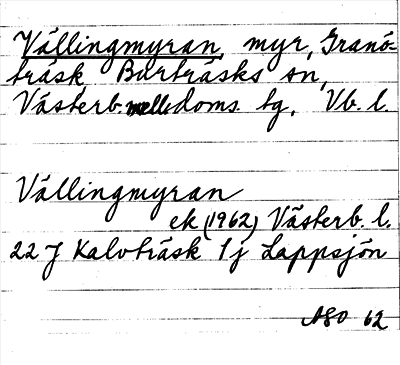 Vällingmyran, myr, Granö-
träsk, Burträsks sn,
Västerb. mell. doms. tg, Vb. l.
Vällingmyran
ek (1962) Västerb. l.
22 J Kalvträsk 1j Lappsjön
ASO 62